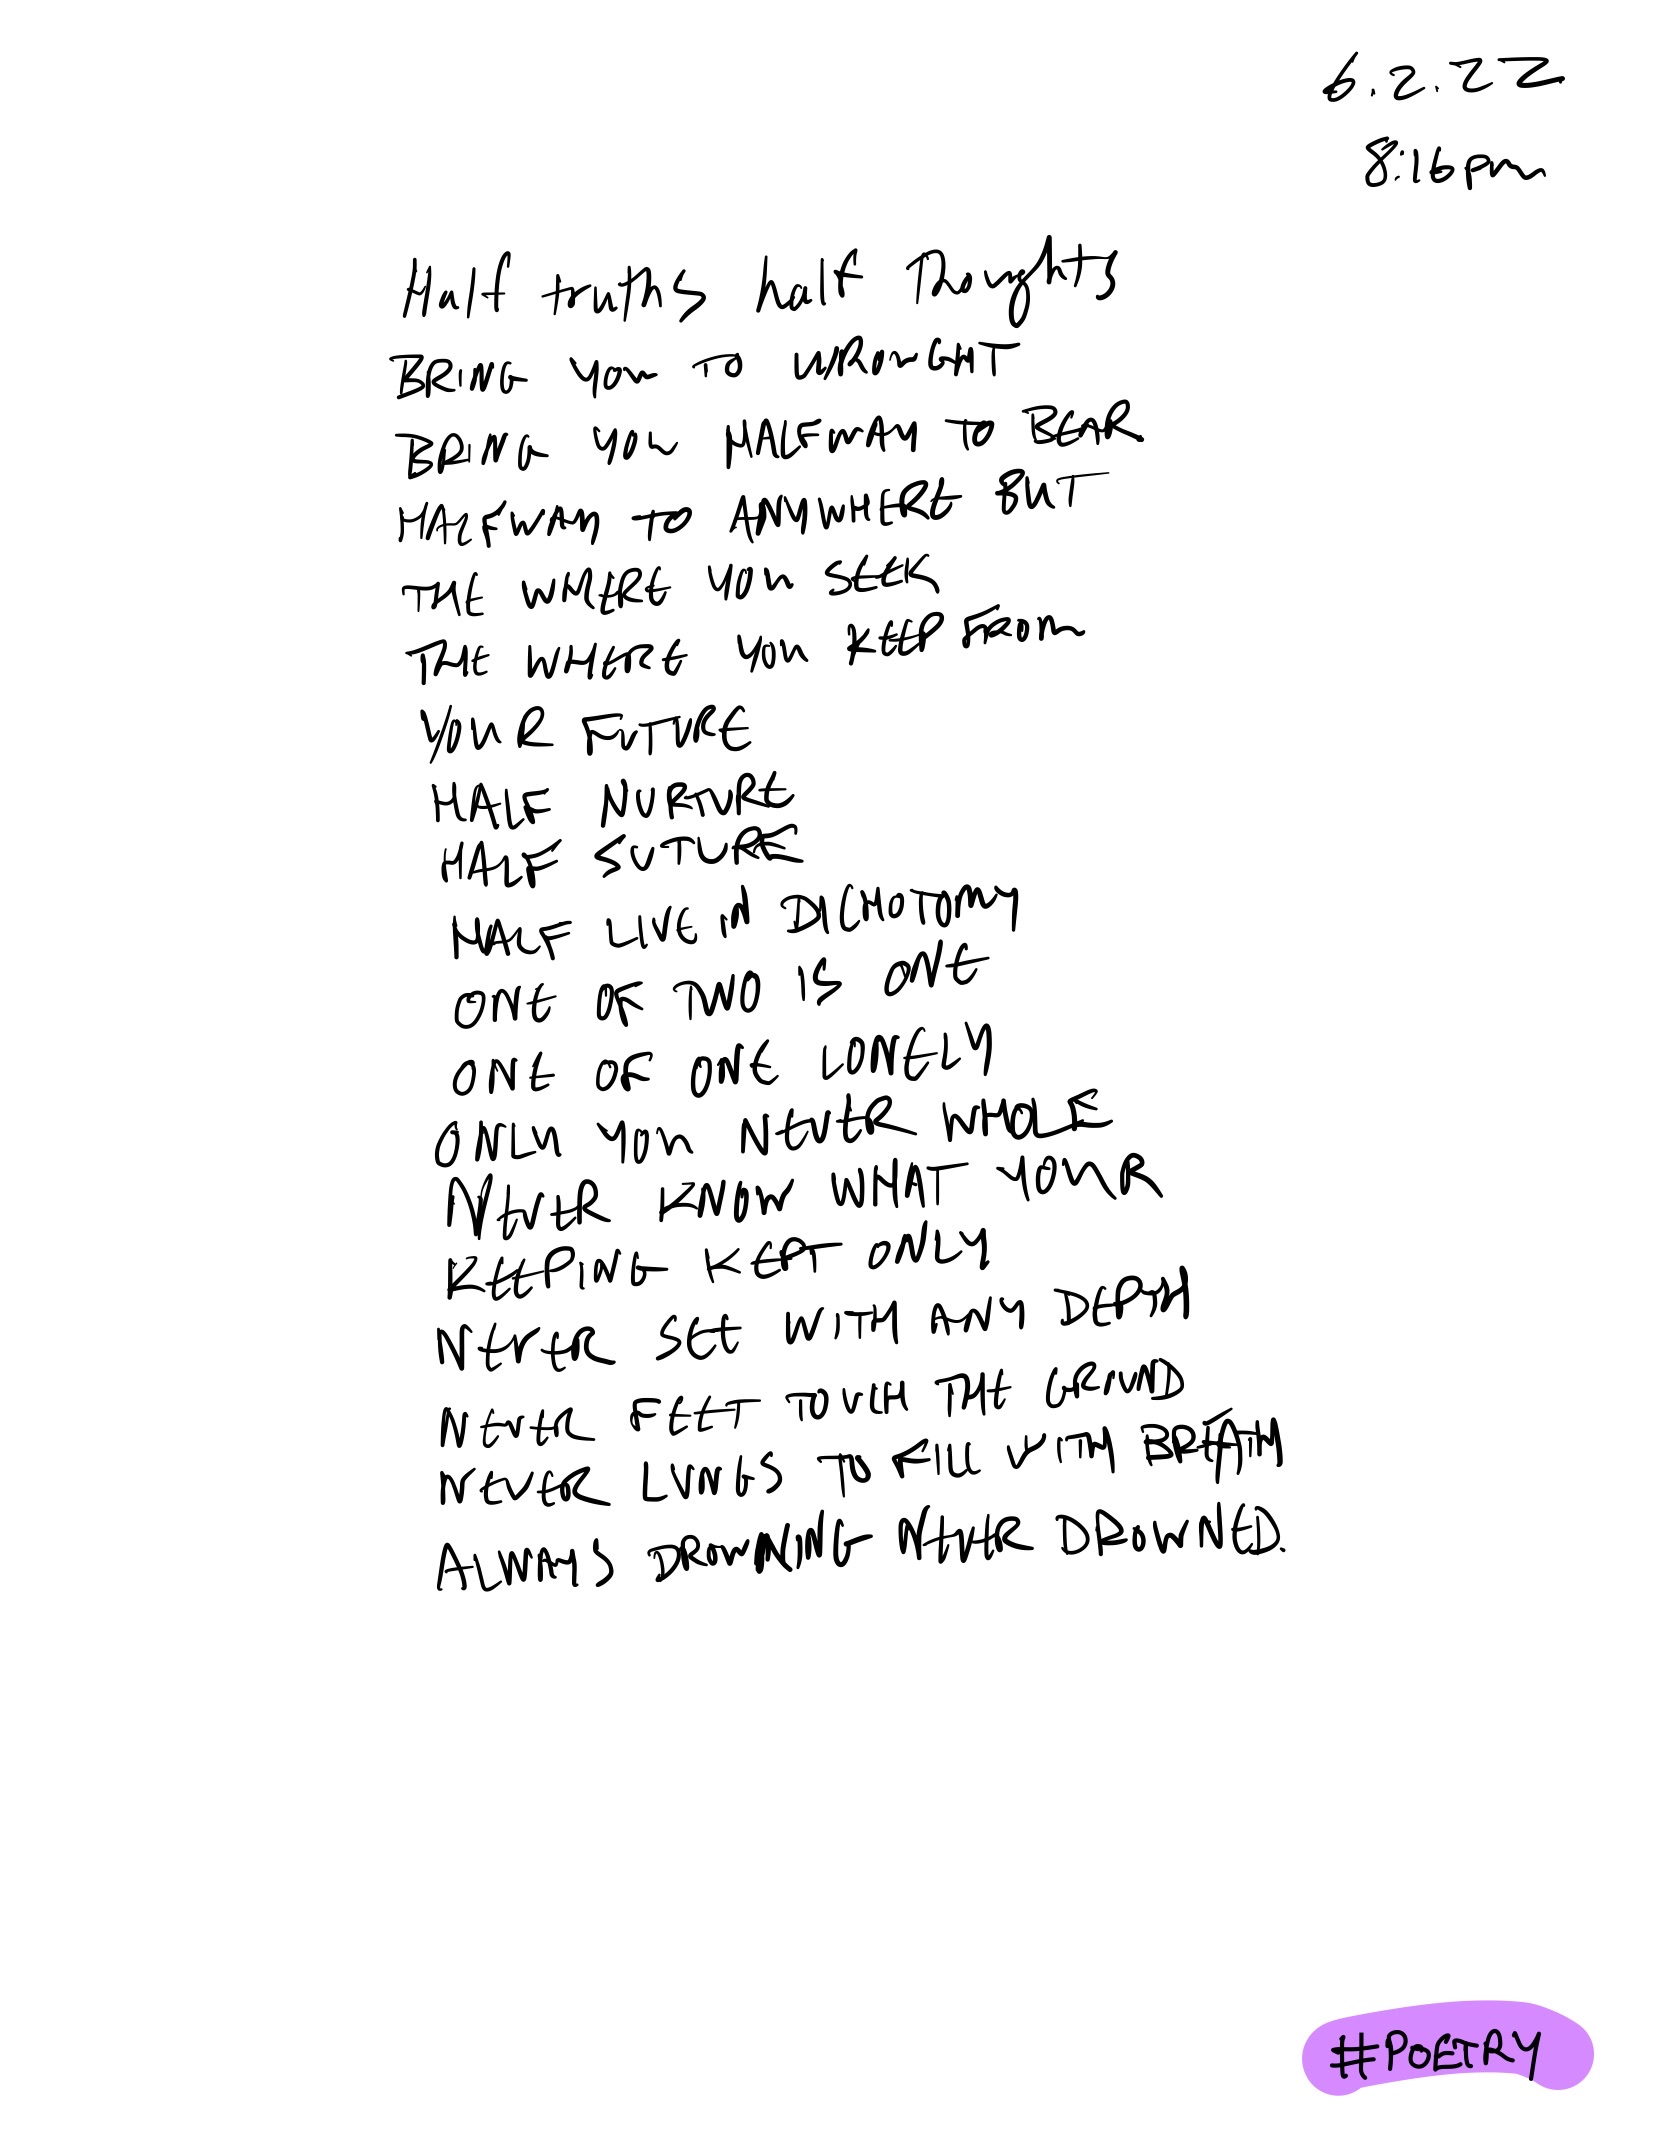 6.2.22
8:16pm
Half truths half Thoughts
BRING YOU TO WROUGHT
BRING YOU HALFWAY TO BEAR
HALFWAY TO ANYWHERE BUT
THE WHERE YOU SEEK
THE WHERE YOU KEEP FROM
YOUR FUTURE
HALF NURTURE
HALF SUTURE
HALF LIVE IN DICHOTOMY
ONE OF TWO IS ONE
ONE OF ONE LONELY
ONLY YOU NEVER WHOLE
NEVER KNOW WHAT YOUR
KEEPING KEPT ONLY
NEVER SEE WITH ANY DEPTH
NEVER FEET TOUCH THE GROUND
NEVER LUNGS TO FILL WITH BREATH
ALWAYS DROWNING NEVER DROWNED.
#POETRY